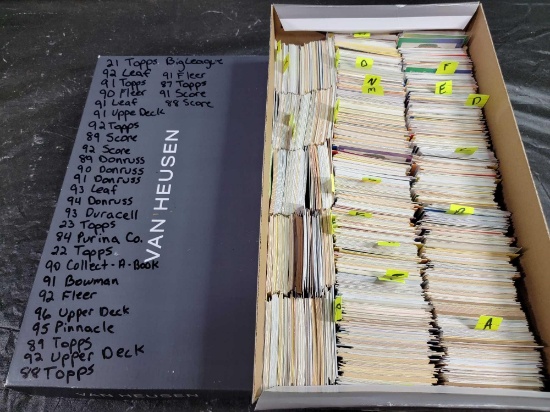 21 Topps Big League
92 Leaf 91 Fleer
91 Topps 87 Topps
90 Fleer 91 Score
91 Leaf 88 Score
91 Uppe Deck
92 Topps
89 Score
92 Score
89 Donruss
90 Donruss
91 Donruss
93 Leaf
94 Donruss
93 Duracell
23 Topps
84 Purina Co.
22 Topps
90 Collect-A-Book
91 Bowman
92 Fleer
96 Upper Deck
95 Pinnacle
89 Topps
92 Upper Deck
88 Topps
VAN HEUSEN
VAN HEUSEN
O
N
M
F
E
D
A